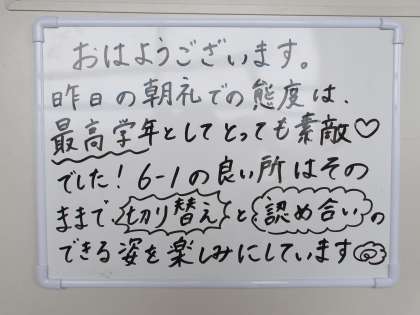 おはようございます。
昨日の朝礼での態度は、
最高学年としてとっても素敵♡
でした！6-1の良い所はその
ままで、切り替えと認め合いの
できる姿を楽しみにしています